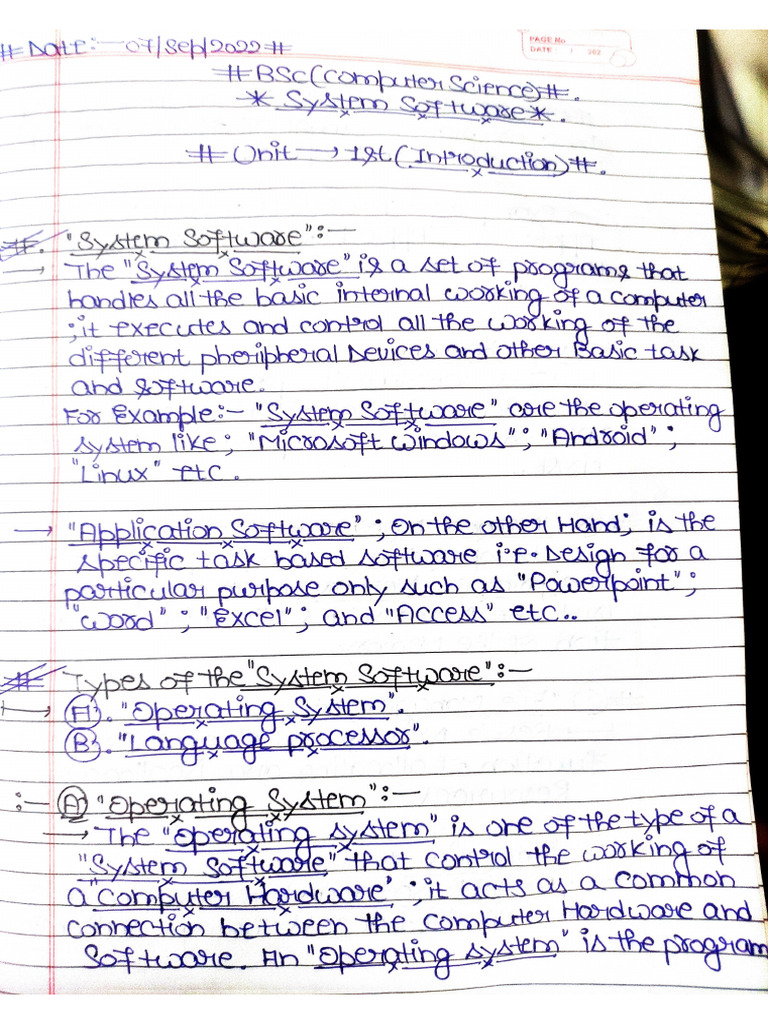 # Date:- 07/Sep/2022 #
PAGE No.
DATE / 202
# BSc(Computer Science) #.
* System Software *.
# Unit → 1st (Introduction) #.
#. "System Software":-
→ The "System Software" is a set of programs that
handles all the basic internal working of a computer
;it executes and control all the working of the
different pheripheral Devices and other Basic task
and software.
For Example:- "System Software" are the operating
system like; "Microsoft Windows"; "Android";
"Linux" etc.
→ "Application Software"; On the other Hand; is the
specific task based software i.e. Design for a
particular purpose only such as "Powerpoint";
"Word"; "Excel"; and "Access" etc..
# Types of the "System Software":-
→ A). "Operating System".
B). "Language processor".
:- A) "Operating System":-
→ The "operating system" is one of the type of a
"System Software" that control the working of
a "Computer Hardware"; it acts as a common
connection between the computer Hardware and
Software. An "Operating system" is the program